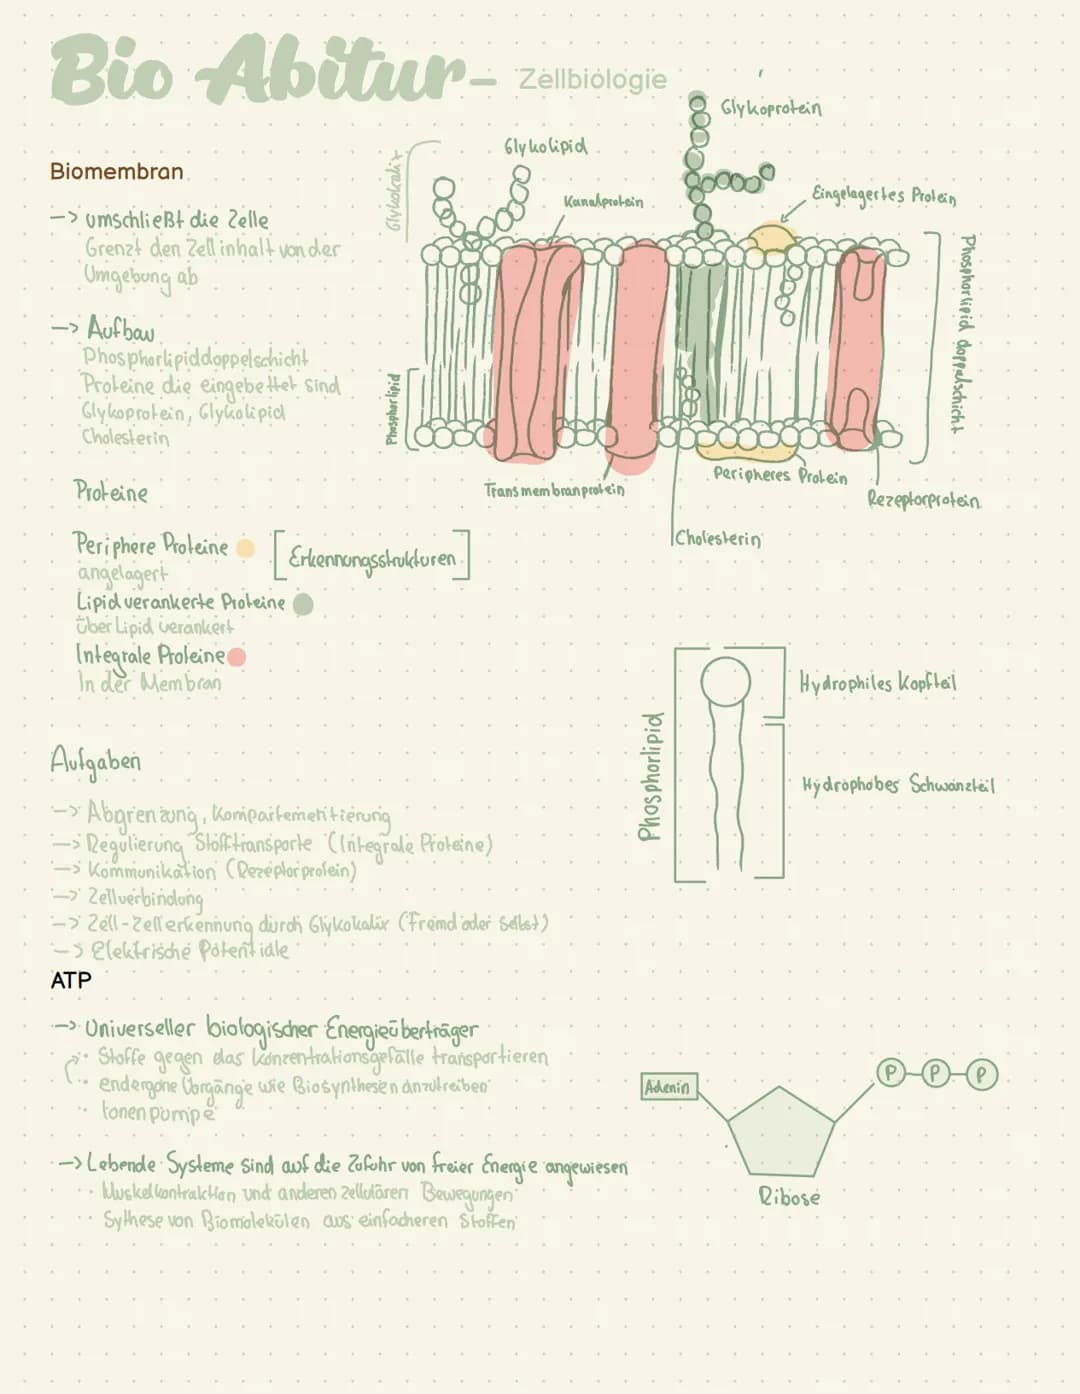 Bio Abitur – Zellbiologie
Biomembran
-> umschließt die Zelle
Grenzt den Zellinhalt von der
Umgebung ab
-> Aufbau
Phosphorlipiddoppelschicht
Proteine die eingebettet sind
Glykoprotein, Glykolipid
Cholesterin
Glykokalix
Glykolipid
Kanalprotein
Glykoprotein
Eingelagertes Protein
Phosphorlipid doppelschicht
Phosphorlipid
Transmembranprotein
Peripheres Protein
Rezeptorprotein
Cholesterin
Proteine
Periphere Proteine [Erkennungsstrukturen]
angelagert
Lipidverankerte Proteine
über Lipid verankert
Integrale Proteine
In der Membran
Phosphorlipid
Hydrophiles Kopfteil
Hydrophobes Schwanzteil
Aufgaben
-> Abgrenzung, Kompartimentierung
-> Regulierung Stofftransporte (Integrale Proteine)
-> Kommunikation (Rezeptorprotein)
-> Zellverbindung
-> Zell-Zellerkennung durch Glykokalix (Fremd oder Selbst)
-> Elektrische Potentiale
ATP
-> Universeller biologischer Energieüberträger
· Stoffe gegen das Konzentrationsgefälle transportieren
· endergone Vorgänge wie Biosynthesen anzutreiben
· Ionenpumpe
-> Lebende Systeme sind auf die Zufuhr von freier Energie angewiesen
· Muskelkontraktion und anderen zellulären Bewegungen
· Sythese von Biomolekülen aus einfacheren Stoffen
Adenin
P P P
Ribose